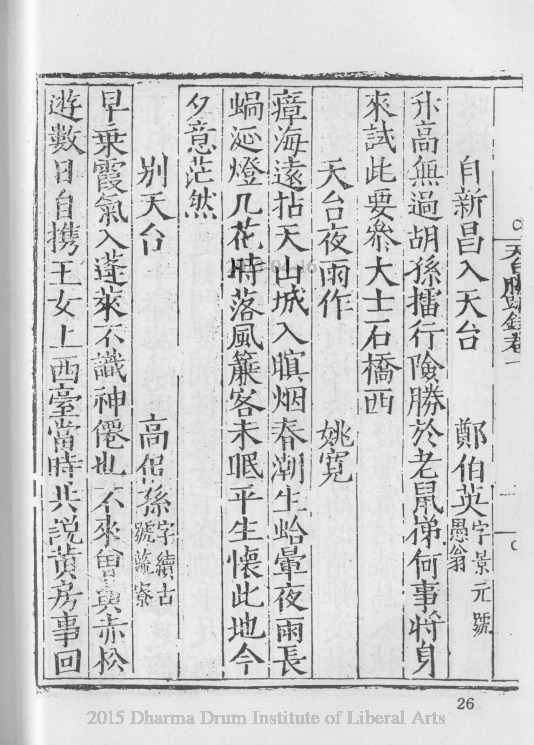 天台勝蹟錄卷一
自新昌入天台 鄭伯英 字景元號愚翁
升高無過胡孫擂行險勝於老鼠梯何事將身
來試此要叅大士石橋西
天台夜雨作 姚寬
瘴海遠拈天山城入瞑烟春潮生蛤暈夜雨長
蝸涎燈几花時落風簾客未眠平生懷此地今
夕意茫然
別天台 高佀孫 字續古號疏寮
早乘霞氣入蓬萊不識神僊也不來曾與赤松
遊數日自携玉女上西臺當時共說黃房事回
26
2015 Dharma Drum Institute of Liberal Arts